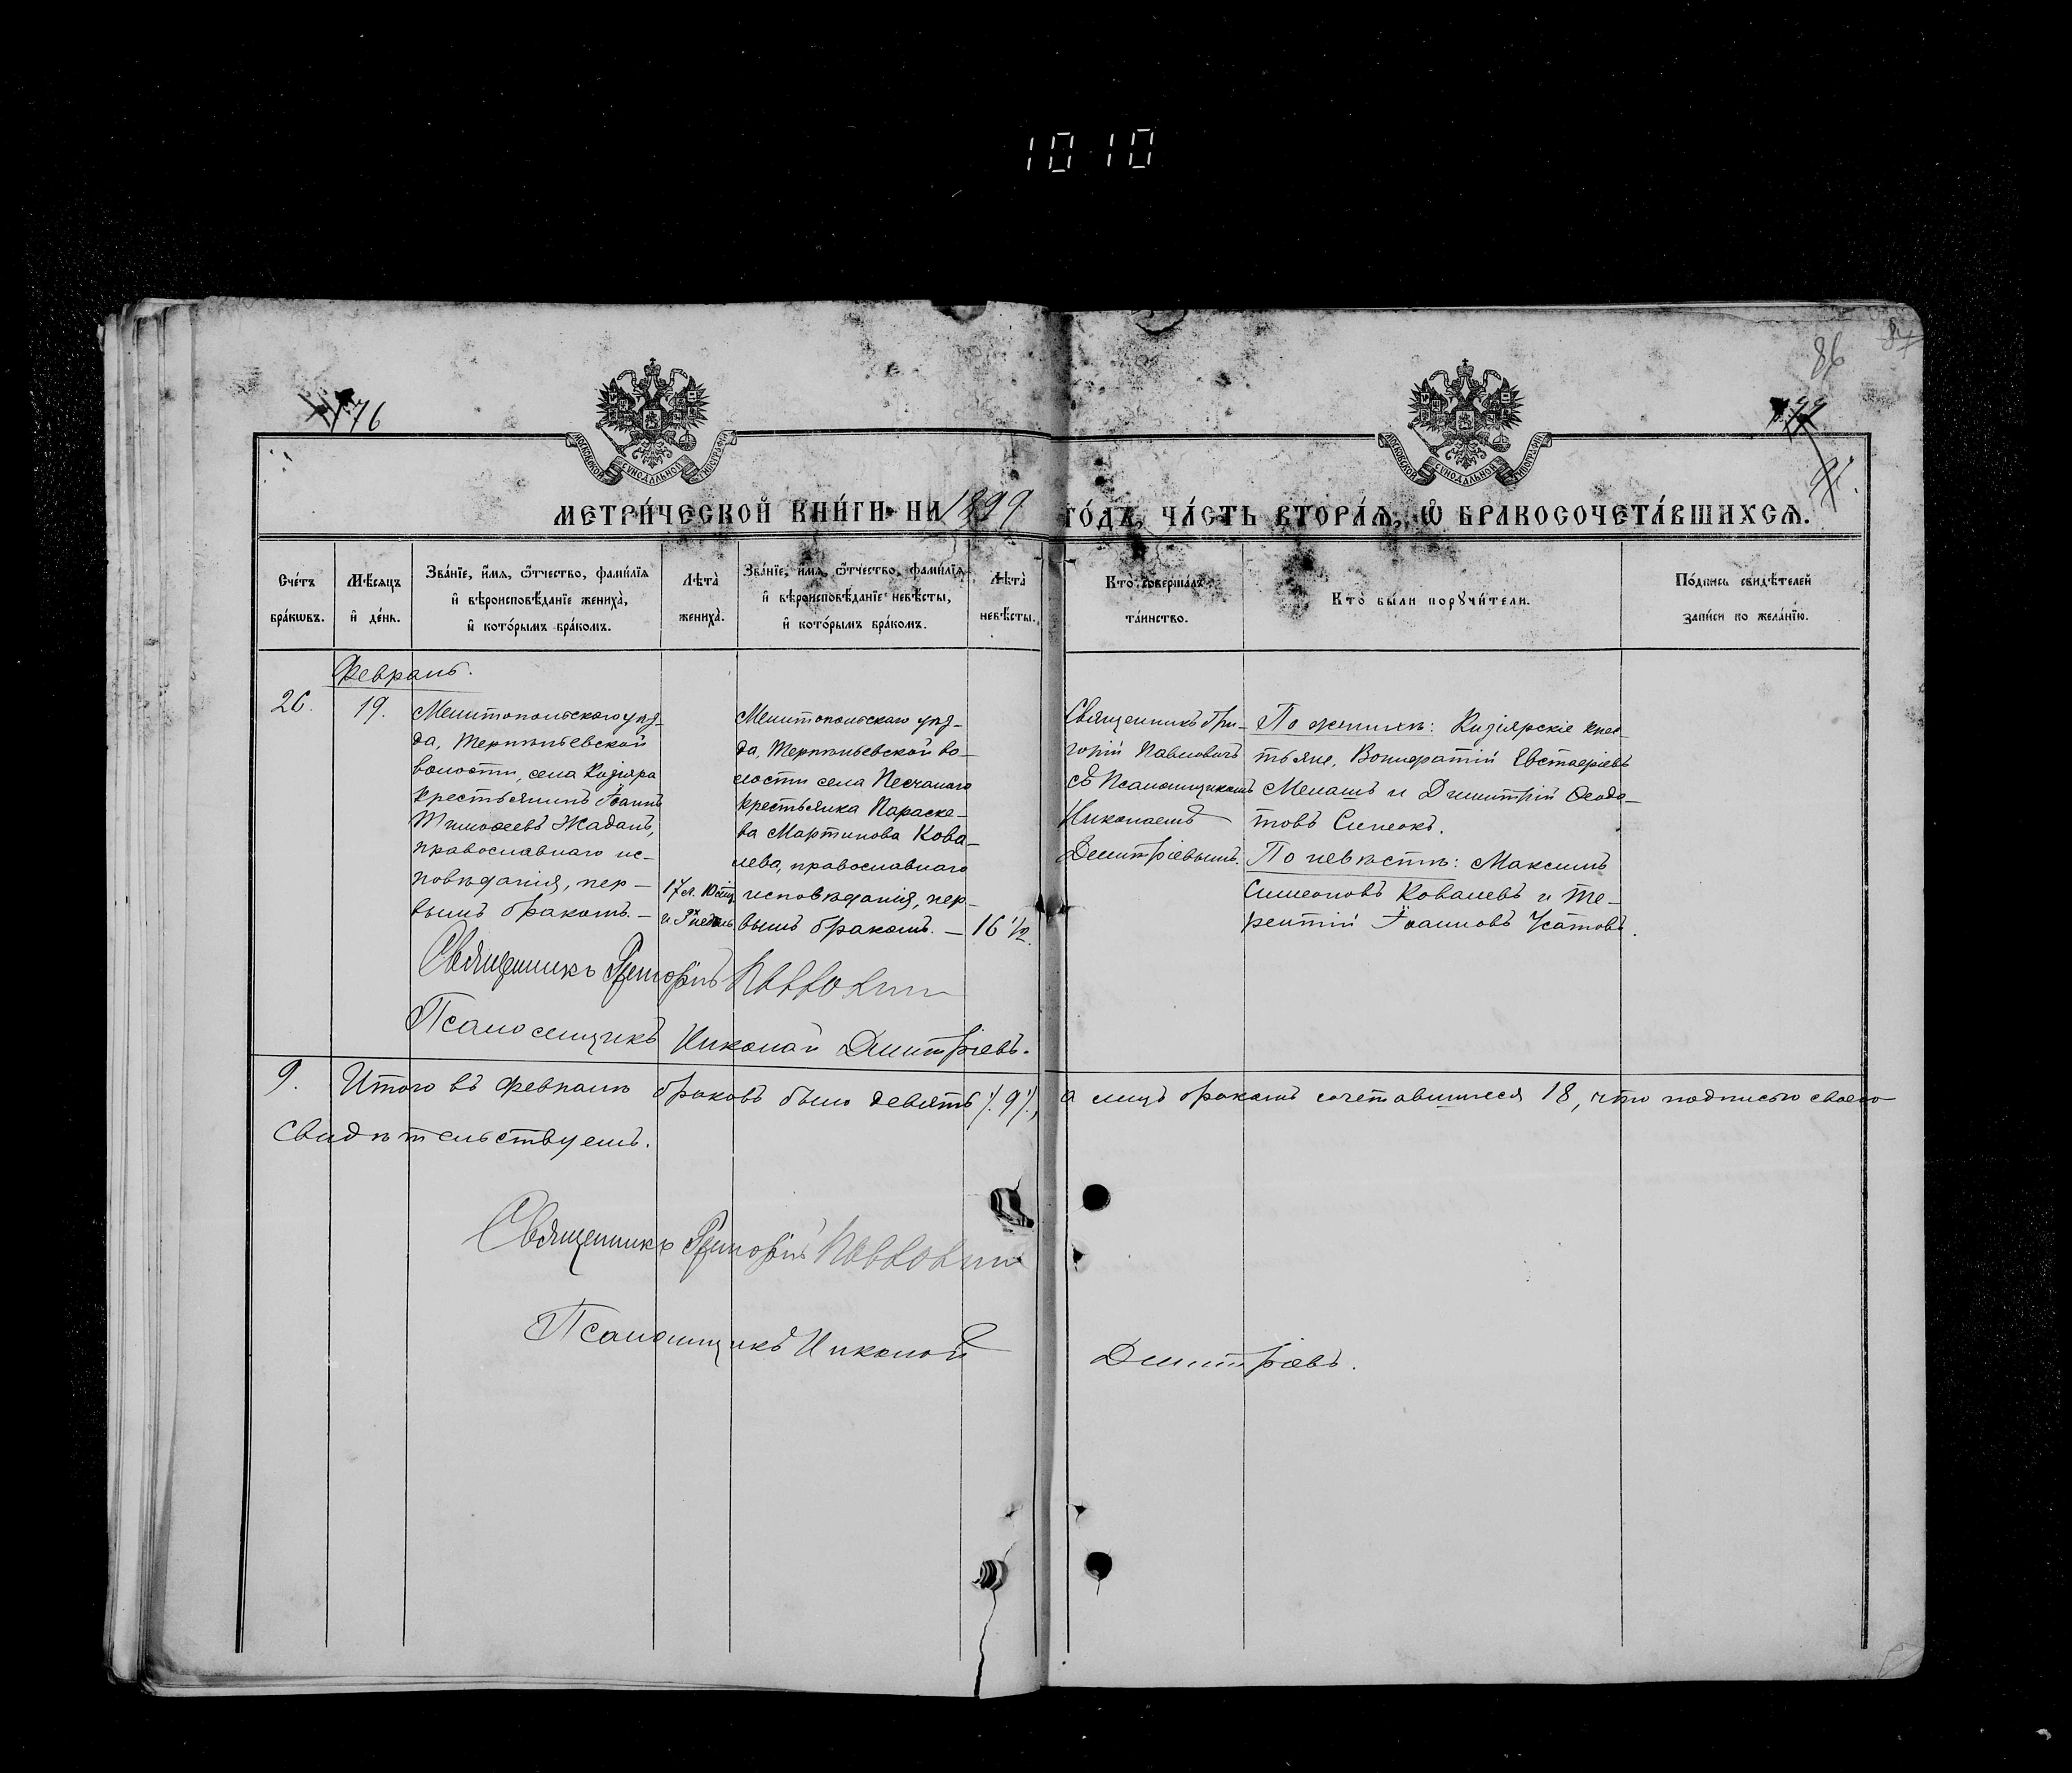 10 10
86
87
176
МОСКОВСКОЙ СѴНОДАЛЬНОЙ ТИПОГРАФІИ
МОСКОВСКОЙ СѴНОДАЛЬНОЙ ТИПОГРАФІИ
МЕТРИ́ЧЕСКОЙ КНИ́ГИ НА 1899 ГО́ДЪ, ЧА́СТЬ ВТОРА́Ѧ, Ѡ БРАКОСОЧЕТА́ВШИХСѦ.
Сче́тъ
бра́кѡвъ.
Мѣ́сяцъ
и҆ де́нь.
Зва́нїе, и҆́мѧ, ѻ҆́тчество, фами́лїѧ
и҆ вѣроисповѣ́данїе жениха̀,
и҆ кото́рымъ бра́комъ.
Лѣта̀
жениха̀.
Зва́нїе, и҆́мѧ, ѻ҆́тчество, фами́лїѧ
и҆ вѣроисповѣ́данїе невѣ́сты,
и҆ кото́рымъ бра́комъ.
Лѣта̀
невѣ́сты.
Кто̀ соверша́лъ
та́инство.
Кто̀ бы́ли порꙋчи́тели.
По́дпись свидѣ́телей
за́писи по жела́нїю.
Февраль.
26.
19.
Мелитопольскаго уѣз-
да, Терпѣньевской
волости, села Кизіяра
крестьянинъ Іоаннъ
Тимоѳеевъ Жаданъ,
православнаго ис-
повѣданія, пер-
вымъ бракомъ.-
17 л. 10 мѣс.
и 9 недѣль
Мелитопольскаго уѣз-
да, Терпѣньевской во-
лости села Песчанаго
крестьянка Параске-
ва Мартинова Кова-
лева, православнаго
исповѣданія, пер-
вымъ бракомъ. -
16 ½.
Священникъ Гри-
горій Павловичъ
съ Псаломщикомъ
Николаемъ
Димитріевымъ.
По женихѣ: Кизіярскіе крес-
тьяне, Вонифатій Евстафіевъ
Мелашъ и Димитрій Ѳеодо-
товъ
По невѣстѣ: Максимъ
Симеоновъ Ковалевъ и Те-
рентій Іоанновъ Усатовъ.
Священникъ Григорій
Псаломщикъ Николай Димитріевъ.
9. Итого въ февралѣ браковъ было девять /.9/., а лицъ бракомъ сочетавшихся 18, что подписью своею
свидѣтельствуемъ.
Священникъ Григорій
Псаломщикъ Николай Димитріевъ.